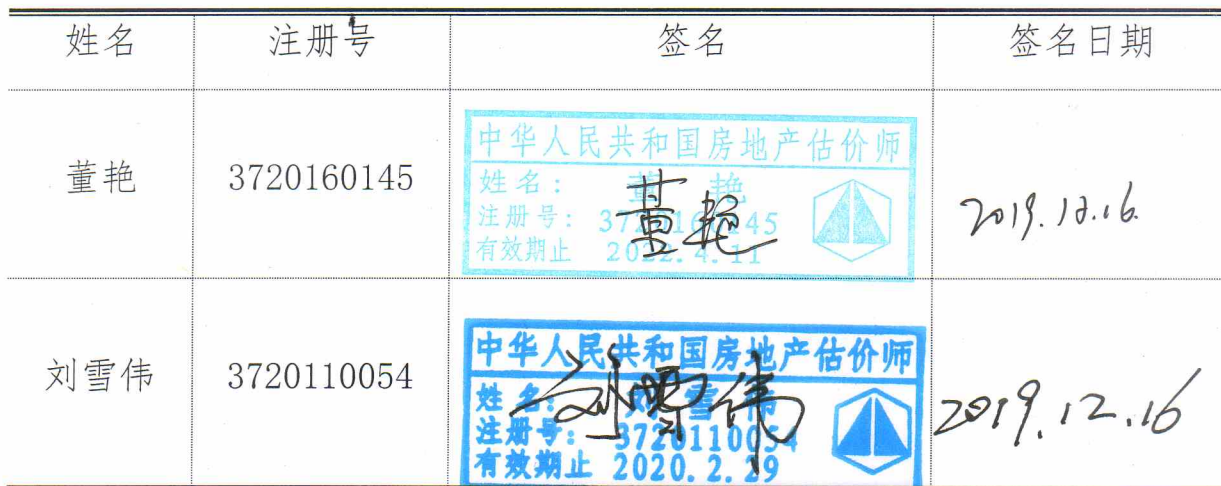 姓名 注册号 签名 签名日期
董艳 3720160145
中华人民共和国房地产估价师
姓名: 董艳
注册号: 3720160145
有效期止 2022.4.11
董艳
2019.12.16
刘雪伟 3720110054
中华人民共和国房地产估价师
姓名: 刘雪伟
注册号: 3720110054
有效期止 2020.2.29
刘雪伟
2019.12.16